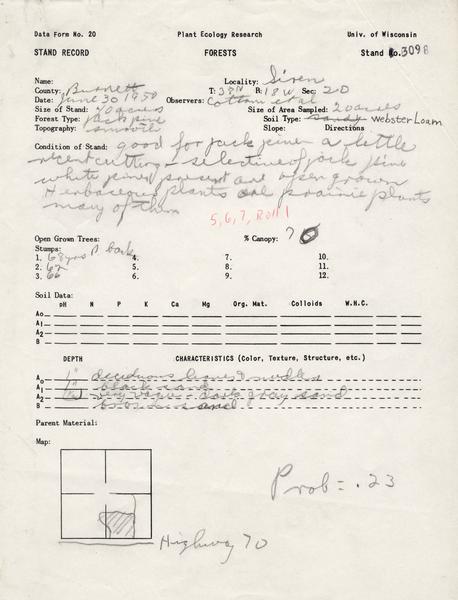 Data Form No. 20 Plant Ecology Research Univ. of Wisconsin
STAND RECORD FORESTS Stand No. 3098
Name: Locality: Siren
County: Burnett T: 38N R: 18W Sec: 20
Date: June 30 1958 Observers: Cottam et al
Size of Stand: 70 acres Size of Area Sampled: 20 acres
Forest Type: Jack pine Soil Type: sandy Webster Loam
Topography: smooth Slope: Directions
Condition of Stand: good for jack pine. a little
recent cutting - selective of jack pine
white pines present are open grown
Herbaceous plants are prairie plants
many of them
5, 6, 7, Roll 1
Open Grown Trees: % Canopy: 70
Stumps:
1. 68 yrs 4. 7. 10.
2. 62 5. 8. 11.
3. 66 6. 9. 12.
Soil Data:
pH N P K Ca Mg Org. Mat. Colloids W.H.C.
Ao
A1
A2
B
DEPTH CHARACTERISTICS (Color, Texture, Structure, etc.)
Ao 1" deciduous leaves & needles
A1 1" black sand
A2 very vague - dark gray sand
B sand
Parent Material:
Map:
Prob = .23
Highway 70